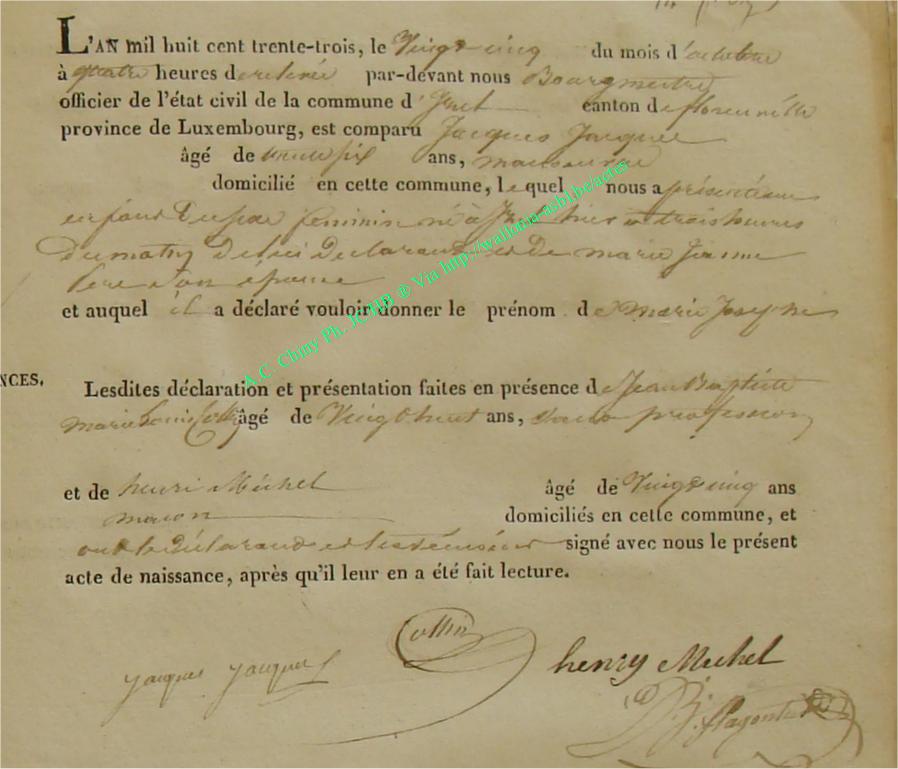 L'AN mil huit cent trente-trois, le Vingt cinq du mois d'octobre
à quatre heures de relevée par-devant nous Bourgmestre
officier de l'état civil de la commune d' canton de florenville
province de Luxembourg, est comparu Jacques Jacques
âgé de trente six ans, manoeuvre
domicilié en cette commune, lequel nous a présenté un
enfant du sexe feminin né à hier a trois heures
du matin de lui declarant et de marie Jeanne
son épouse
et auquel il a déclaré vouloir donner le prénom de marie Josephe
NCES. Lesdites déclaration et présentation faites en présence de Jean Baptiste
marie Louis Collin âgé de Vingt huit ans, sans profession
et de henri Michel âgé de Vingt cinq ans
macon domiciliés en cette commune, et
ont le déclarant et les témoins signé avec nous le présent
acte de naissance, après qu'il leur en a été fait lecture.
Collin
Jacques Jacques henry Michel
A.C. Chiny Ph. JCHB ® Via http://wallonia-asbl.be/actes